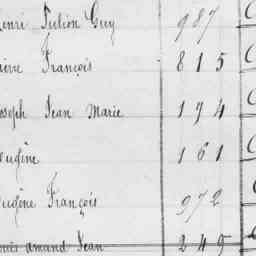 Henri Julien Guy 987
François 815
Joseph Jean Marie 194
Eugène 161
Eugène François 972
Louis Amand Jean 249